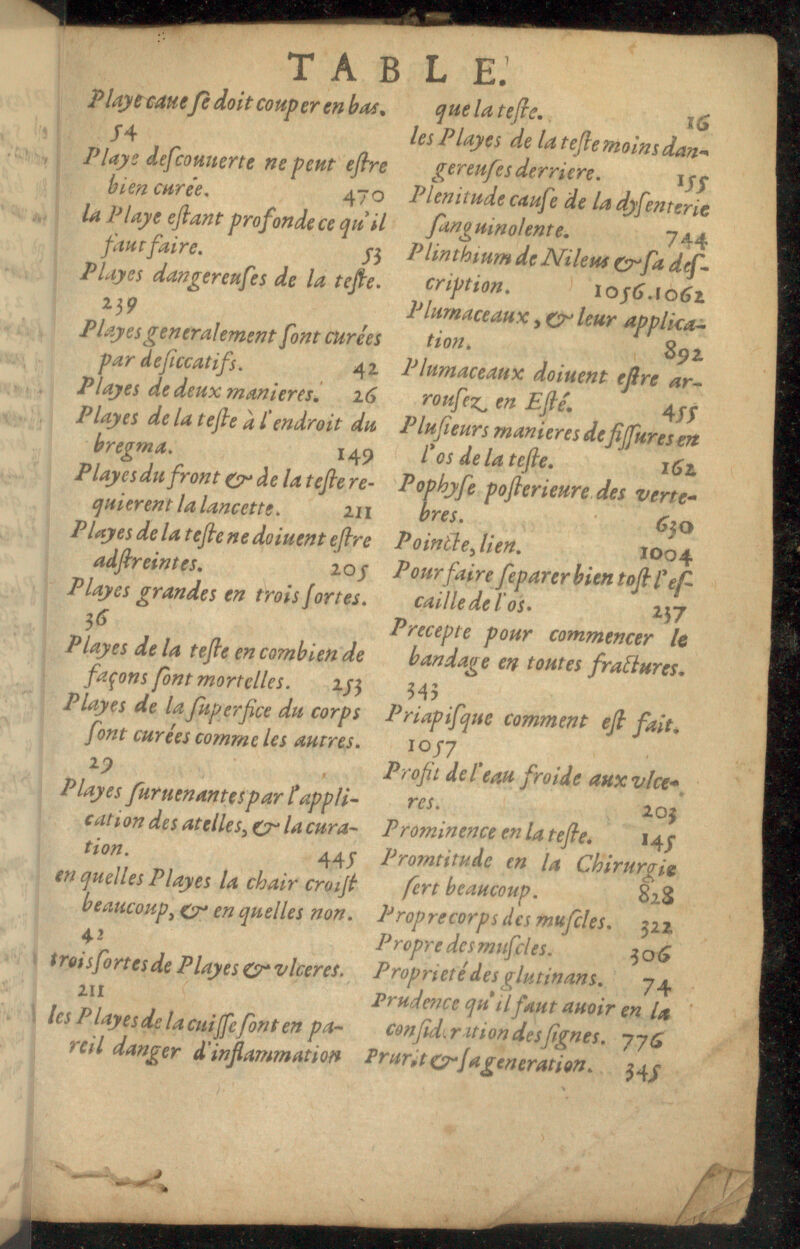 TABLE.
Playe caue ſe doit couper en bas.
54
Playe deſcouuerte ne peut eſtre
bien curée. 470
la Playe eſtant profonde ce qu'il
faut faire. 53
Playes dangereuſes de la teſte.
239
Playes generalement ſont curées
par deſiccatifs. 42
Playes de deux manieres. 26
Playes de la teſte à l'endroit du
bregma. 149
Playes du front & de la teſte re-
quierent la lancette. 211
Playes de la teſte ne doiuent eſtre
adſtreintes. 205
Playes grandes en trois ſortes.
36
Playes de la teſte en combien de
façons ſont mortelles. 253
Playes de la ſuperfice du corps
ſont curées comme les autres.
29
Playes ſuruenantes par l'appli-
cation des atelles, & la cura-
tion. 445
en quelles Playes la chair croiſt
beaucoup, & en quelles non.
42
trois ſortes de Playes & vlceres.
211
les Playes de la cuiſſe ſont en pa-
reil danger d'inflammation
que la teſte. 16
les Playes de la teſte moins dan-
gereuſes derriere. 155
Plenitude cauſe de la dyſenterie
ſanguinolente. 744
Plinthium de Nileus & ſa deſ-
cription. 1056.1062
Plumaceaux, & leur applica-
tion. 892
Plumaceaux doiuent eſtre ar-
rouſez en Eſté. 455
Pluſieurs manieres de fiſſures en
l'os de la teſte. 162
Pophyſe poſterieure des verte-
bres. 630
Poincte, lien. 1004
Pour faire ſeparer bien toſt l'eſ-
caille de l'os. 237
Precepte pour commencer le
bandage en toutes fractures.
343
Priapiſque comment eſt fait.
1057
Profit de l'eau froide aux vlce-
res. 203
Prominence en la teſte. 145
Promtitude en la Chirurgie
ſert beaucoup. 828
Propre corps des muſcles. 322
Propre des muſcles. 306
Proprieté des glutinans. 74
Prudence qu'il faut auoir en la
conſideration des ſignes. 776
Prurit & ſa generation. 345